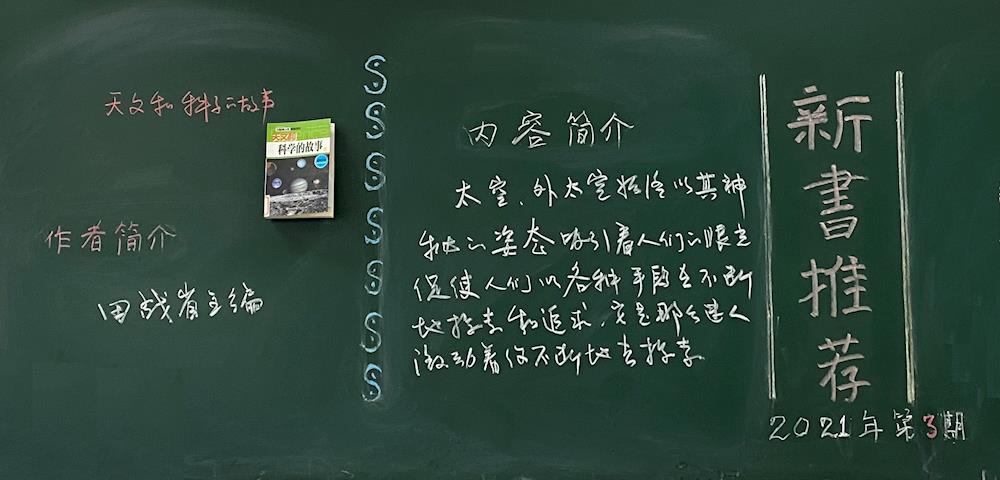 新書推荐
2021年第3期
内容简介
太空、外太空始终以其神
秘的姿态吸引着人们的眼光
促使人们以各种手段去不断
地探索和追求,它是那么迷人
激动着你不断地去探索
SSSSSSS
天文和科学的故事
天文和
科学的故事
作者简介
田战省主编